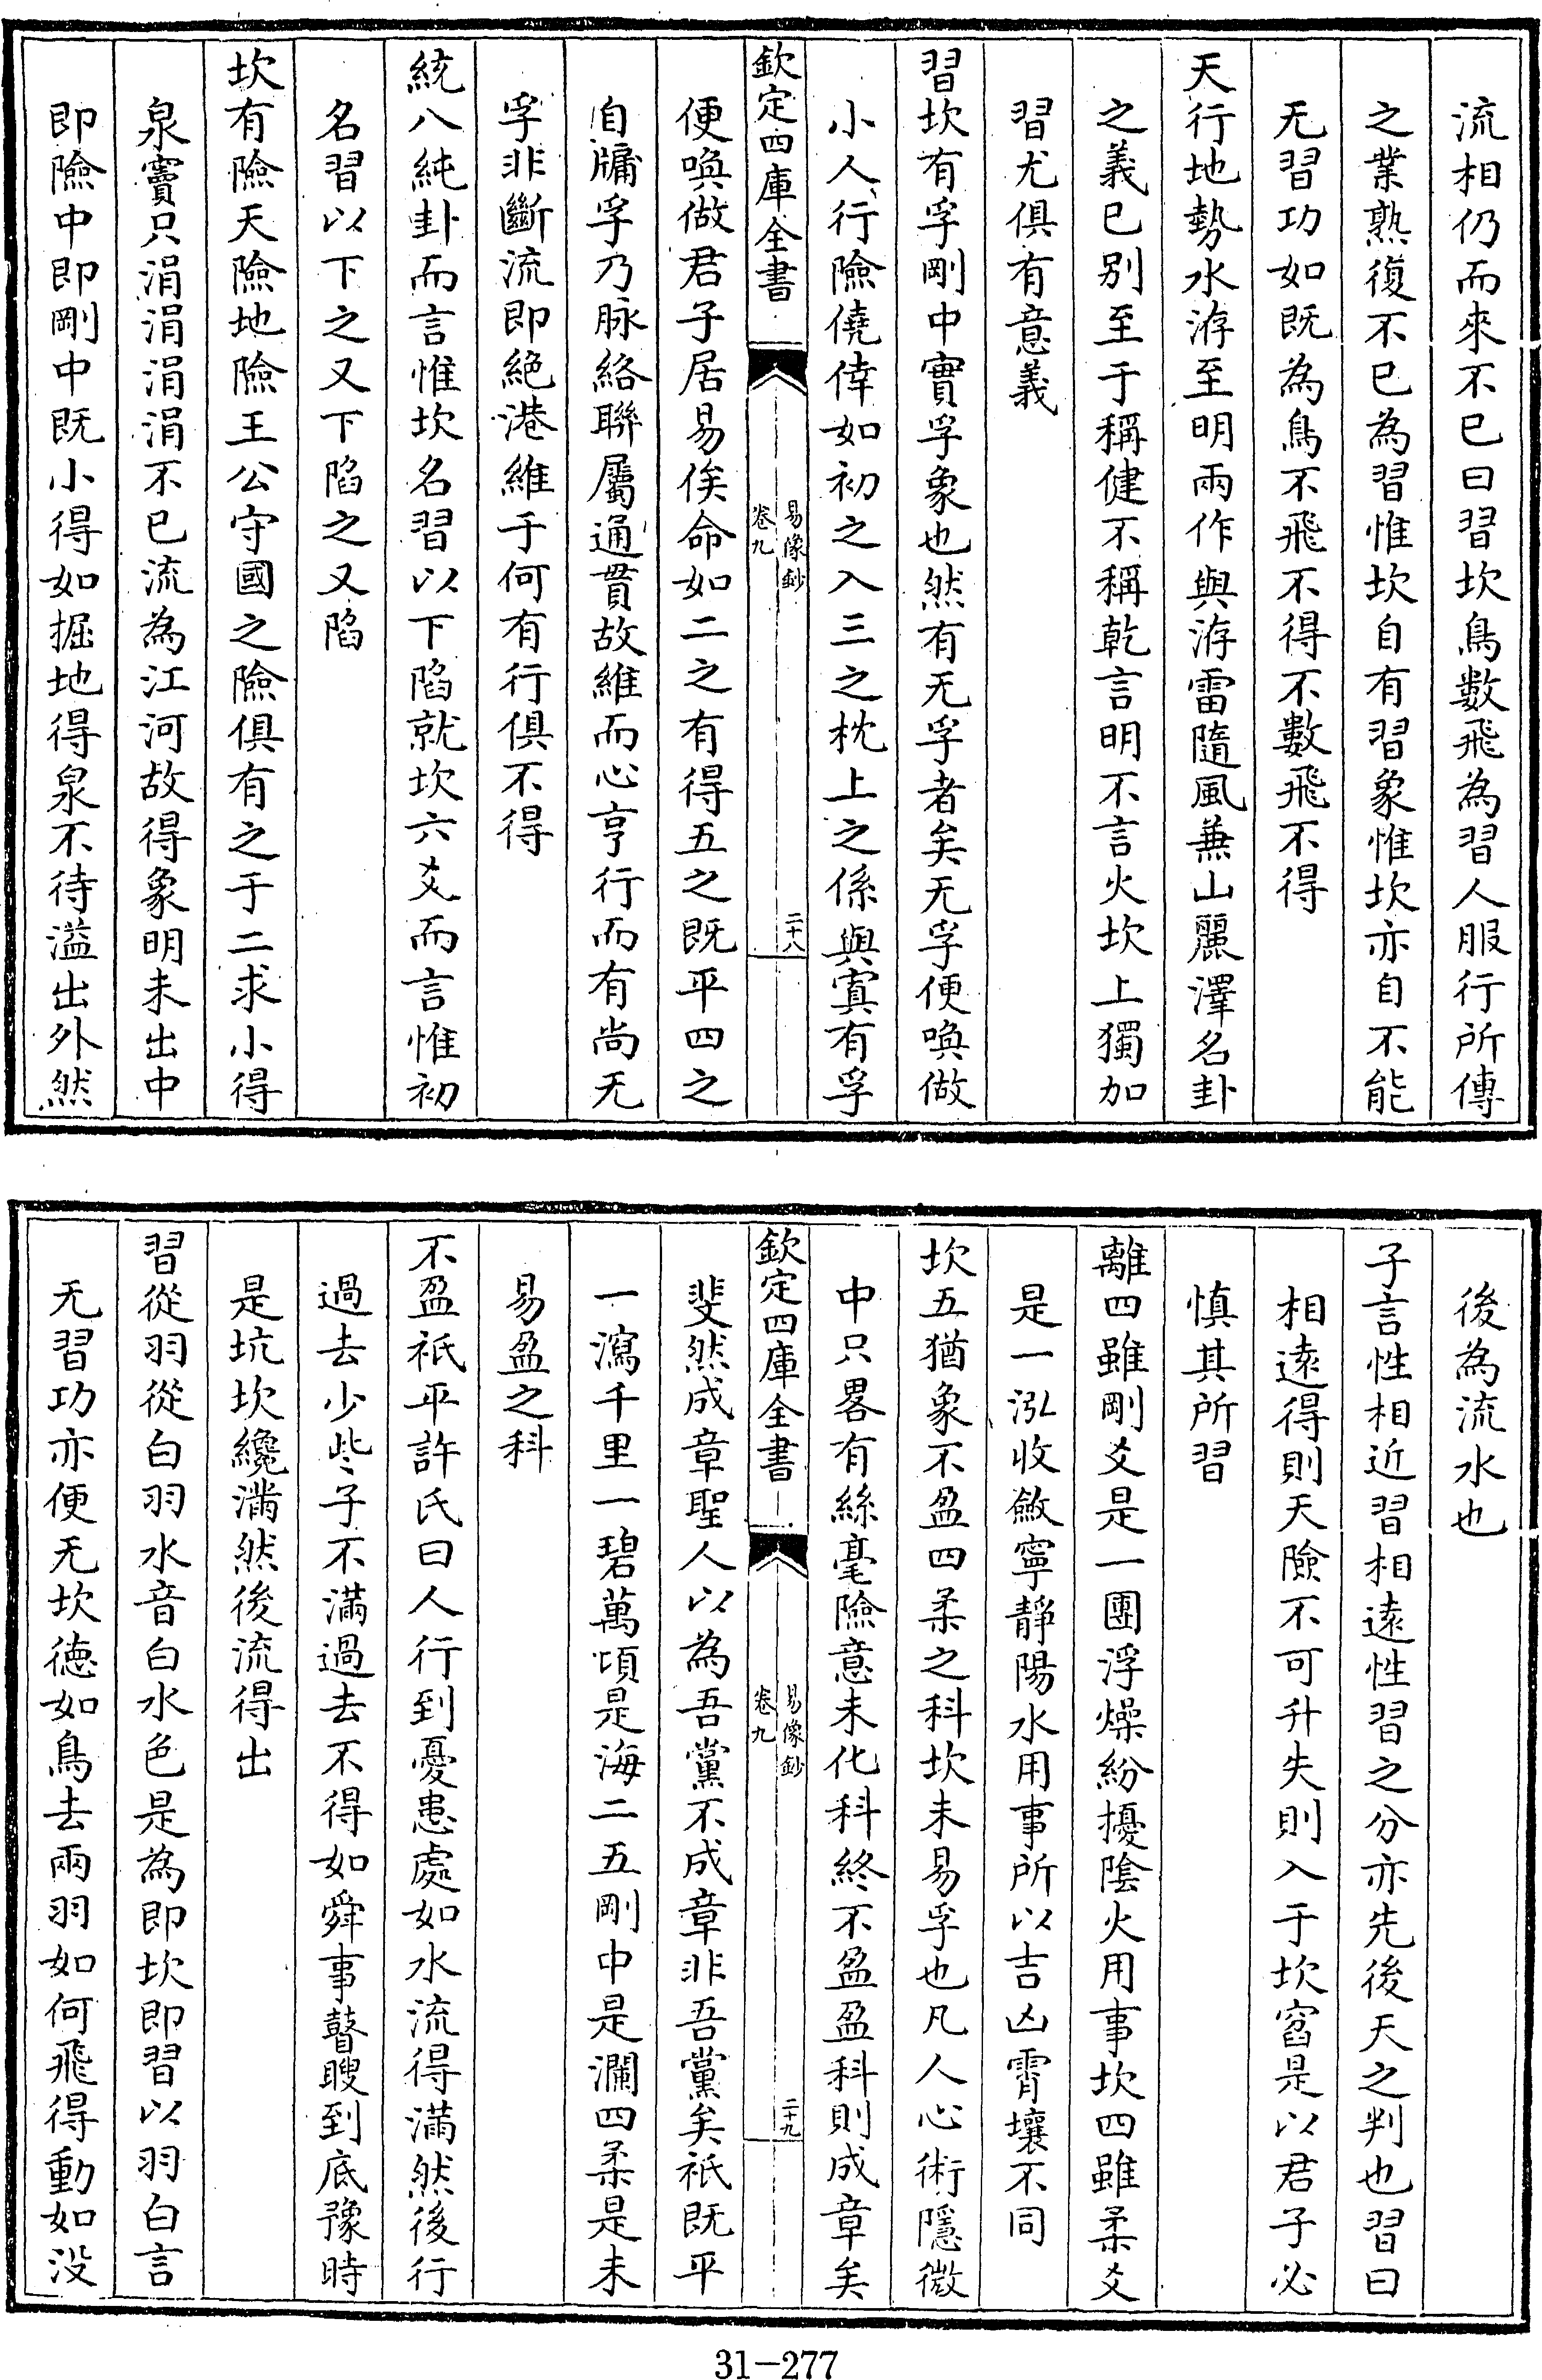 流相仍而來不已曰習坎鳥數飛為習人服行所傳
之業熟復不已為習惟坎自有習象惟坎亦自不能
无習功如既為鳥不飛不得不數飛不得
天行地勢水洊至明兩作與洊雷隨風兼山麗澤名卦
之義已别至于稱健不稱乾言明不言火坎上獨加
習尤俱有意義
習坎有孚剛中實孚象也然有无孚者矣无孚便喚做
小人行險僥倖如初之入三之枕上之係與寘有孚
欽定四庫全書
易像鈔
卷九
二十八
便喚做君子居易俟命如二之有得五之既平四之
自牖孚乃脉絡聯屬通貫故維而心亨行而有尚无
孚非斷流即絕港維于何有行俱不得
統八純卦而言惟坎名習以下陷就坎六爻而言惟初
名習以下之又下陷之又陷
坎有險天險地險王公守國之險俱有之于二求小得
泉竇只涓涓涓涓不已流為江河故得象明未出中
即險中即剛中既小得如掘地得泉不待溢出外然
後為流水也
子言性相近習相遠性習之分亦先後天之判也習曰
相遠得則天險不可升失則入于坎窞是以君子必
慎其所習
離四雖剛爻是一團浮燥紛擾陰火用事坎四雖柔爻
是一泓收斂寧靜陽水用事所以吉凶霄壤不同
坎五猶象不盈四柔之科坎未易孚也凡人心術隱微
中只畧有絲毫險意未化科終不盈盈科則成章矣
欽定四庫全書
易像鈔
卷九
二十九
斐然成章聖人以為吾黨不成章非吾黨矣祇既平
一瀉千里一碧萬頃是海二五剛中是瀾四柔是未
易盈之科
不盈祇平許氏曰人行到憂患處如水流得滿然後行
過去少些子不滿過去不得如舜事瞽瞍到底豫時
是坑坎纔滿然後流得出
習從羽從白羽水音白水色是為即坎即習以羽白言
无習功亦便无坎徳如鳥去兩羽如何飛得動如没
31-277